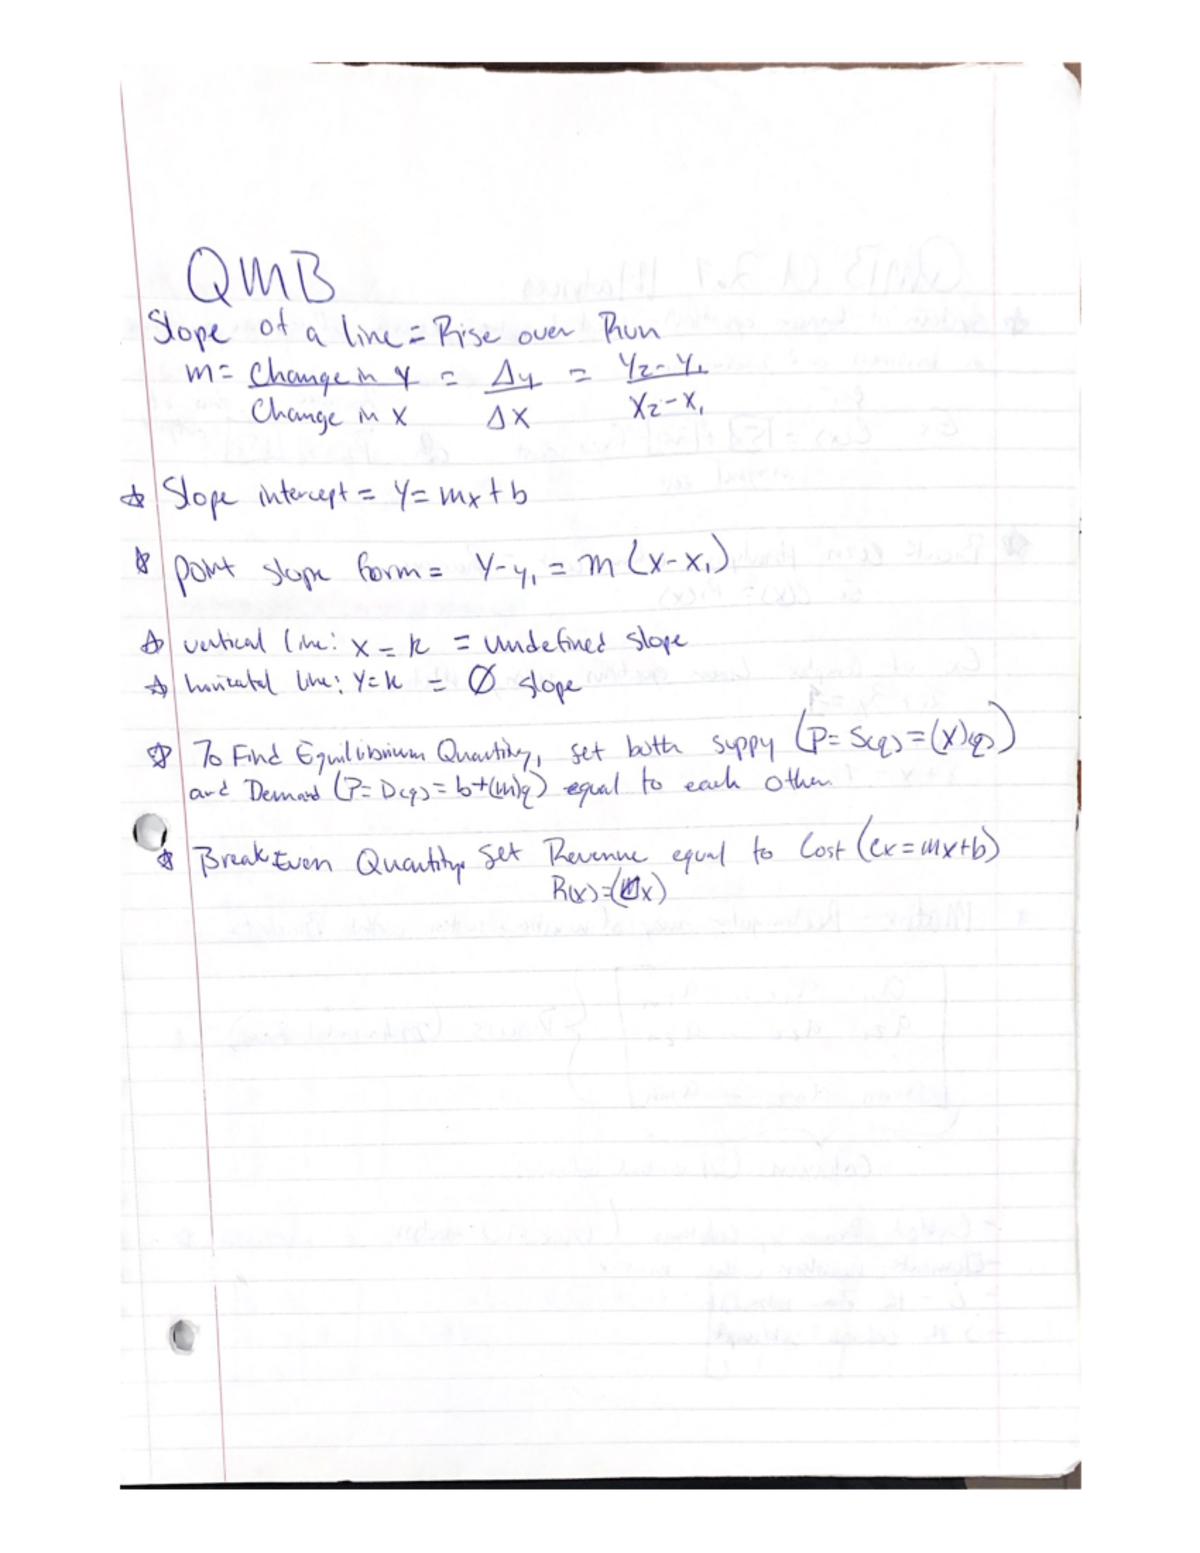 QMB
Slope of a line = Rise over Run
m = Change in y / Change in x = Δy / Δx = y₂-y₁ / x₂-x₁
☆ Slope intercept = y = mx + b
☆ point slope form = y-y₁ = m (x-x₁)
☆ vertical line: x = k = undefined slope
☆ horizatal line: y=k = Ø slope
☆ To Find Equilibrium Quantity, set both suppy (P= S(q) = (x)(q))
and Demand (P= D(q) = b+(m)q) equal to each other.
☆ Break Even Quantity. Set Revenue equal to Cost (cx = mx+b)
R(x)=( x)